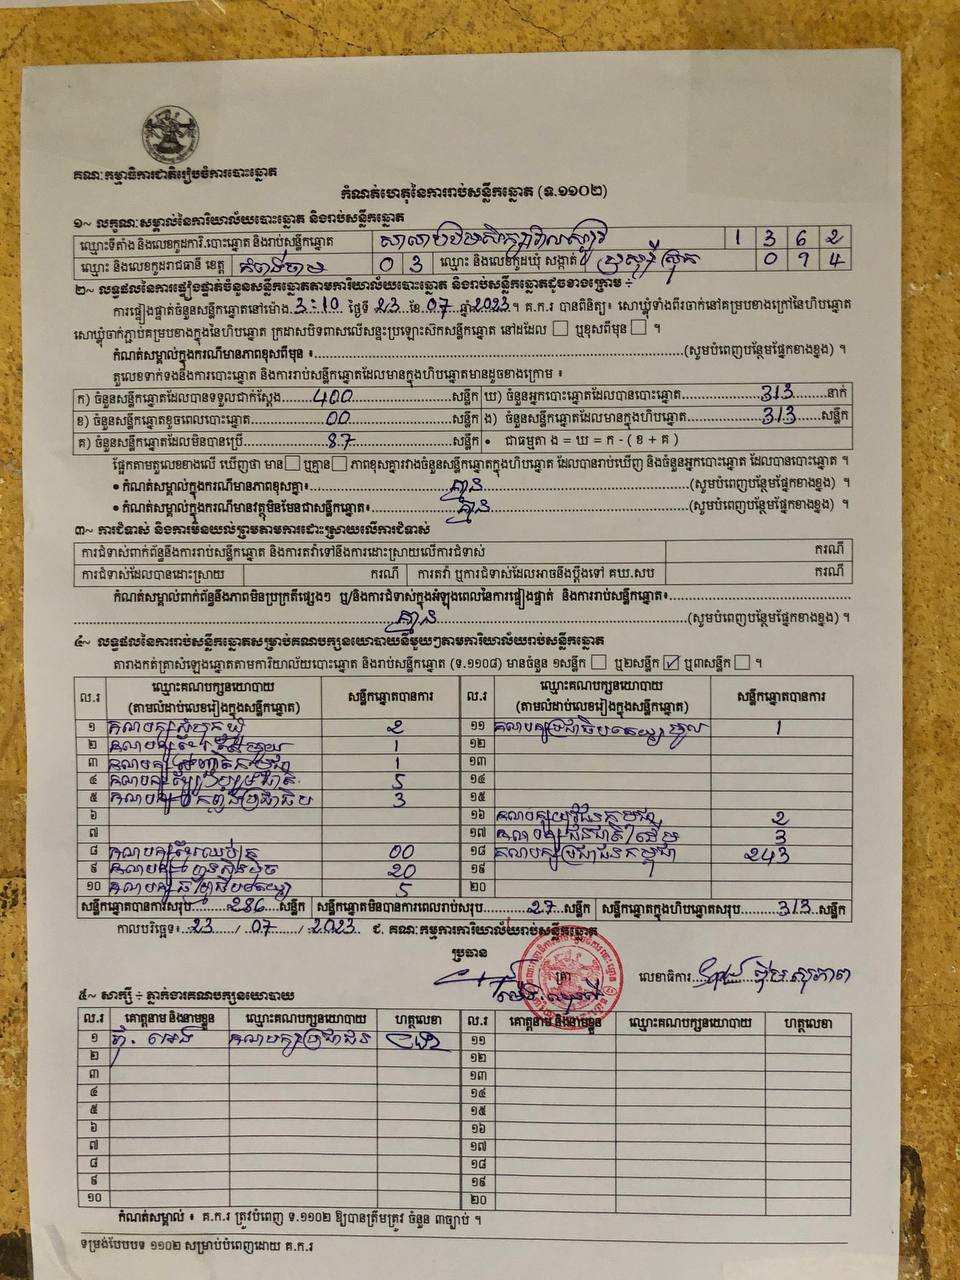 គណៈកម្មាធិការជាតិរៀបចំការបោះឆ្នោត
កំណត់ហេតុនៃការរាប់សន្លឹកឆ្នោត (ទ.១១០២)
១~ លក្ខណៈសម្គាល់នៃការិយាល័យបោះឆ្នោត និងរាប់សន្លឹកឆ្នោត
ឈ្មោះទីតាំង និងលេខកូដការិ.បោះឆ្នោត និងរាប់សន្លឹកឆ្នោត 1 3 6 2
ឈ្មោះ និងលេខកូដរាជធានី ខេត្ត កំពង់ចាម 0 3 ឈ្មោះ និងលេខកូដឃុំ សង្កាត់ 0 7 4
២~ លទ្ធផលនៃការផ្ទៀងផ្ទាត់ចំនួនសន្លឹកឆ្នោតតាមការិយាល័យបោះឆ្នោត និងរាប់សន្លឹកឆ្នោតដូចខាងក្រោម ÷
ការផ្ទៀងផ្ទាត់ចំនួនសន្លឹកឆ្នោតនៅម៉ោង 3:10 ថ្ងៃទី 23 ខែ 07 ឆ្នាំ 2023 ។ គ.ក.រ បានពិនិត្យ៖ សោឃ្លុំទាំងពីរចាក់នៅគម្របខាងក្រៅនៃហិបឆ្នោត
សោឃ្លុំចាក់ភ្ជាប់គម្របខាងក្នុងនៃហិបឆ្នោត ក្រដាសបិទពាសលើសន្ទះប្រឡោះសិកសន្លឹកឆ្នោត នៅដដែល ឬខុសពីមុន ។
កំណត់សម្គាល់ក្នុងករណីមានភាពខុសពីមុន ៖ (សូមបំពេញបន្ថែមផ្នែកខាងខ្នង) ។
តួលេខទាក់ទងនឹងការបោះឆ្នោត និងការរាប់សន្លឹកឆ្នោតដែលមានក្នុងហិបឆ្នោតមានដូចខាងក្រោម ៖
ក) ចំនួនសន្លឹកឆ្នោតដែលបានទទួលជាក់ស្តែង 400 សន្លឹក ឃ) ចំនួនអ្នកបោះឆ្នោតដែលបានបោះឆ្នោត 313 នាក់
ខ) ចំនួនសន្លឹកឆ្នោតខូចពេលបោះឆ្នោត 00 សន្លឹក ង) ចំនួនសន្លឹកឆ្នោតដែលមានក្នុងហិបឆ្នោត 313 សន្លឹក
គ) ចំនួនសន្លឹកឆ្នោតដែលមិនបានប្រើ 87 សន្លឹក • ជាធម្មតា ង = ឃ = ក - ( ខ + គ )
ផ្អែកតាមតួលេខខាងលើ ឃើញថា មាន ឬគ្មាន ភាពខុសគ្នារវាងចំនួនសន្លឹកឆ្នោតក្នុងហិបឆ្នោត ដែលបានរាប់ឃើញ និងចំនួនអ្នកបោះឆ្នោត ដែលបានបោះឆ្នោត ។
• កំណត់សម្គាល់ក្នុងករណីមានភាពខុសគ្នា៖ គ្មាន (សូមបំពេញបន្ថែមផ្នែកខាងខ្នង) ។
• កំណត់សម្គាល់ក្នុងករណីមានវត្ថុមិនមែនជាសន្លឹកឆ្នោត៖ គ្មាន (សូមបំពេញបន្ថែមផ្នែកខាងខ្នង) ។
៣~ ការជំទាស់ និងការមិនយល់ព្រមតាមការដោះស្រាយលើការជំទាស់
ការជំទាស់ពាក់ព័ន្ធនឹងការរាប់សន្លឹកឆ្នោត និងការតវ៉ាទៅនឹងការដោះស្រាយលើការជំទាស់ ករណី
ការជំទាស់ដែលបានដោះស្រាយ ករណី ការតវ៉ា ឬការជំទាស់ដែលអាចនឹងប្តឹងទៅ គឃ.សប ករណី
កំណត់សម្គាល់ពាក់ព័ន្ធនឹងភាពមិនប្រក្រតីផ្សេងៗ ឬ/និងការជំទាស់ក្នុងអំឡុងពេលនៃការផ្ទៀងផ្ទាត់ និងការរាប់សន្លឹកឆ្នោត៖
គ្មាន (សូមបំពេញបន្ថែមផ្នែកខាងខ្នង) ។
៤~ លទ្ធផលនៃការរាប់សន្លឹកឆ្នោតសម្រាប់គណបក្សនយោបាយនីមួយៗតាមការិយាល័យរាប់សន្លឹកឆ្នោត
តារាងកត់ត្រាសំឡេងឆ្នោតតាមការិយាល័យបោះឆ្នោត និងរាប់សន្លឹកឆ្នោត (ទ.១១០៨) មានចំនួន ១សន្លឹក ឬ២សន្លឹក ✓ ឬ៣សន្លឹក ។
ល.រ ឈ្មោះគណបក្សនយោបាយ (តាមលំដាប់លេខរៀងក្នុងសន្លឹកឆ្នោត) សន្លឹកឆ្នោតបានការ ល.រ ឈ្មោះគណបក្សនយោបាយ (តាមលំដាប់លេខរៀងក្នុងសន្លឹកឆ្នោត) សន្លឹកឆ្នោតបានការ
១ 2 ១១ 1
២ 1 ១២
៣ 1 ១៣
៤ 5 ១៤
៥ 3 ១៥
៦ ១៦ 2
៧ ១៧ 3
៨ 00 ១៨ គណបក្សប្រជាជនកម្ពុជា 243
៩ គណបក្សហ៊្វុនស៊ិនប៉ិច 20 ១៩
១០ 5 ២០
សន្លឹកឆ្នោតបានការសរុប 286 សន្លឹក សន្លឹកឆ្នោតមិនបានការពេលរាប់សរុប 27 សន្លឹក សន្លឹកឆ្នោតក្នុងហិបឆ្នោតសរុប 313 សន្លឹក
កាលបរិច្ឆេទ៖ 23 / 07 / 2023 ជ. គណៈកម្មការការិយាល័យរាប់សន្លឹកឆ្នោត
ប្រធាន
ត្រា លេខាធិការ
៥~ សាក្សី ÷ ភ្នាក់ងារគណបក្សនយោបាយ
ល.រ គោត្តនាម និងនាមខ្លួន ឈ្មោះគណបក្សនយោបាយ ហត្ថលេខា ល.រ គោត្តនាម និងនាមខ្លួន ឈ្មោះគណបក្សនយោបាយ ហត្ថលេខា
១ គណបក្សប្រជាជន ១១
២ ១២
៣ ១៣
៤ ១៤
៥ ១៥
៦ ១៦
៧ ១៧
៨ ១៨
៩ ១៩
១០ ២០
កំណត់សម្គាល់ ៖ គ.ក.រ ត្រូវបំពេញ ទ.១១០២ ឱ្យបានត្រឹមត្រូវ ចំនួន ៣ច្បាប់ ។
ទម្រង់បែបបទ ១១០២ សម្រាប់បំពេញដោយ គ.ក.រ